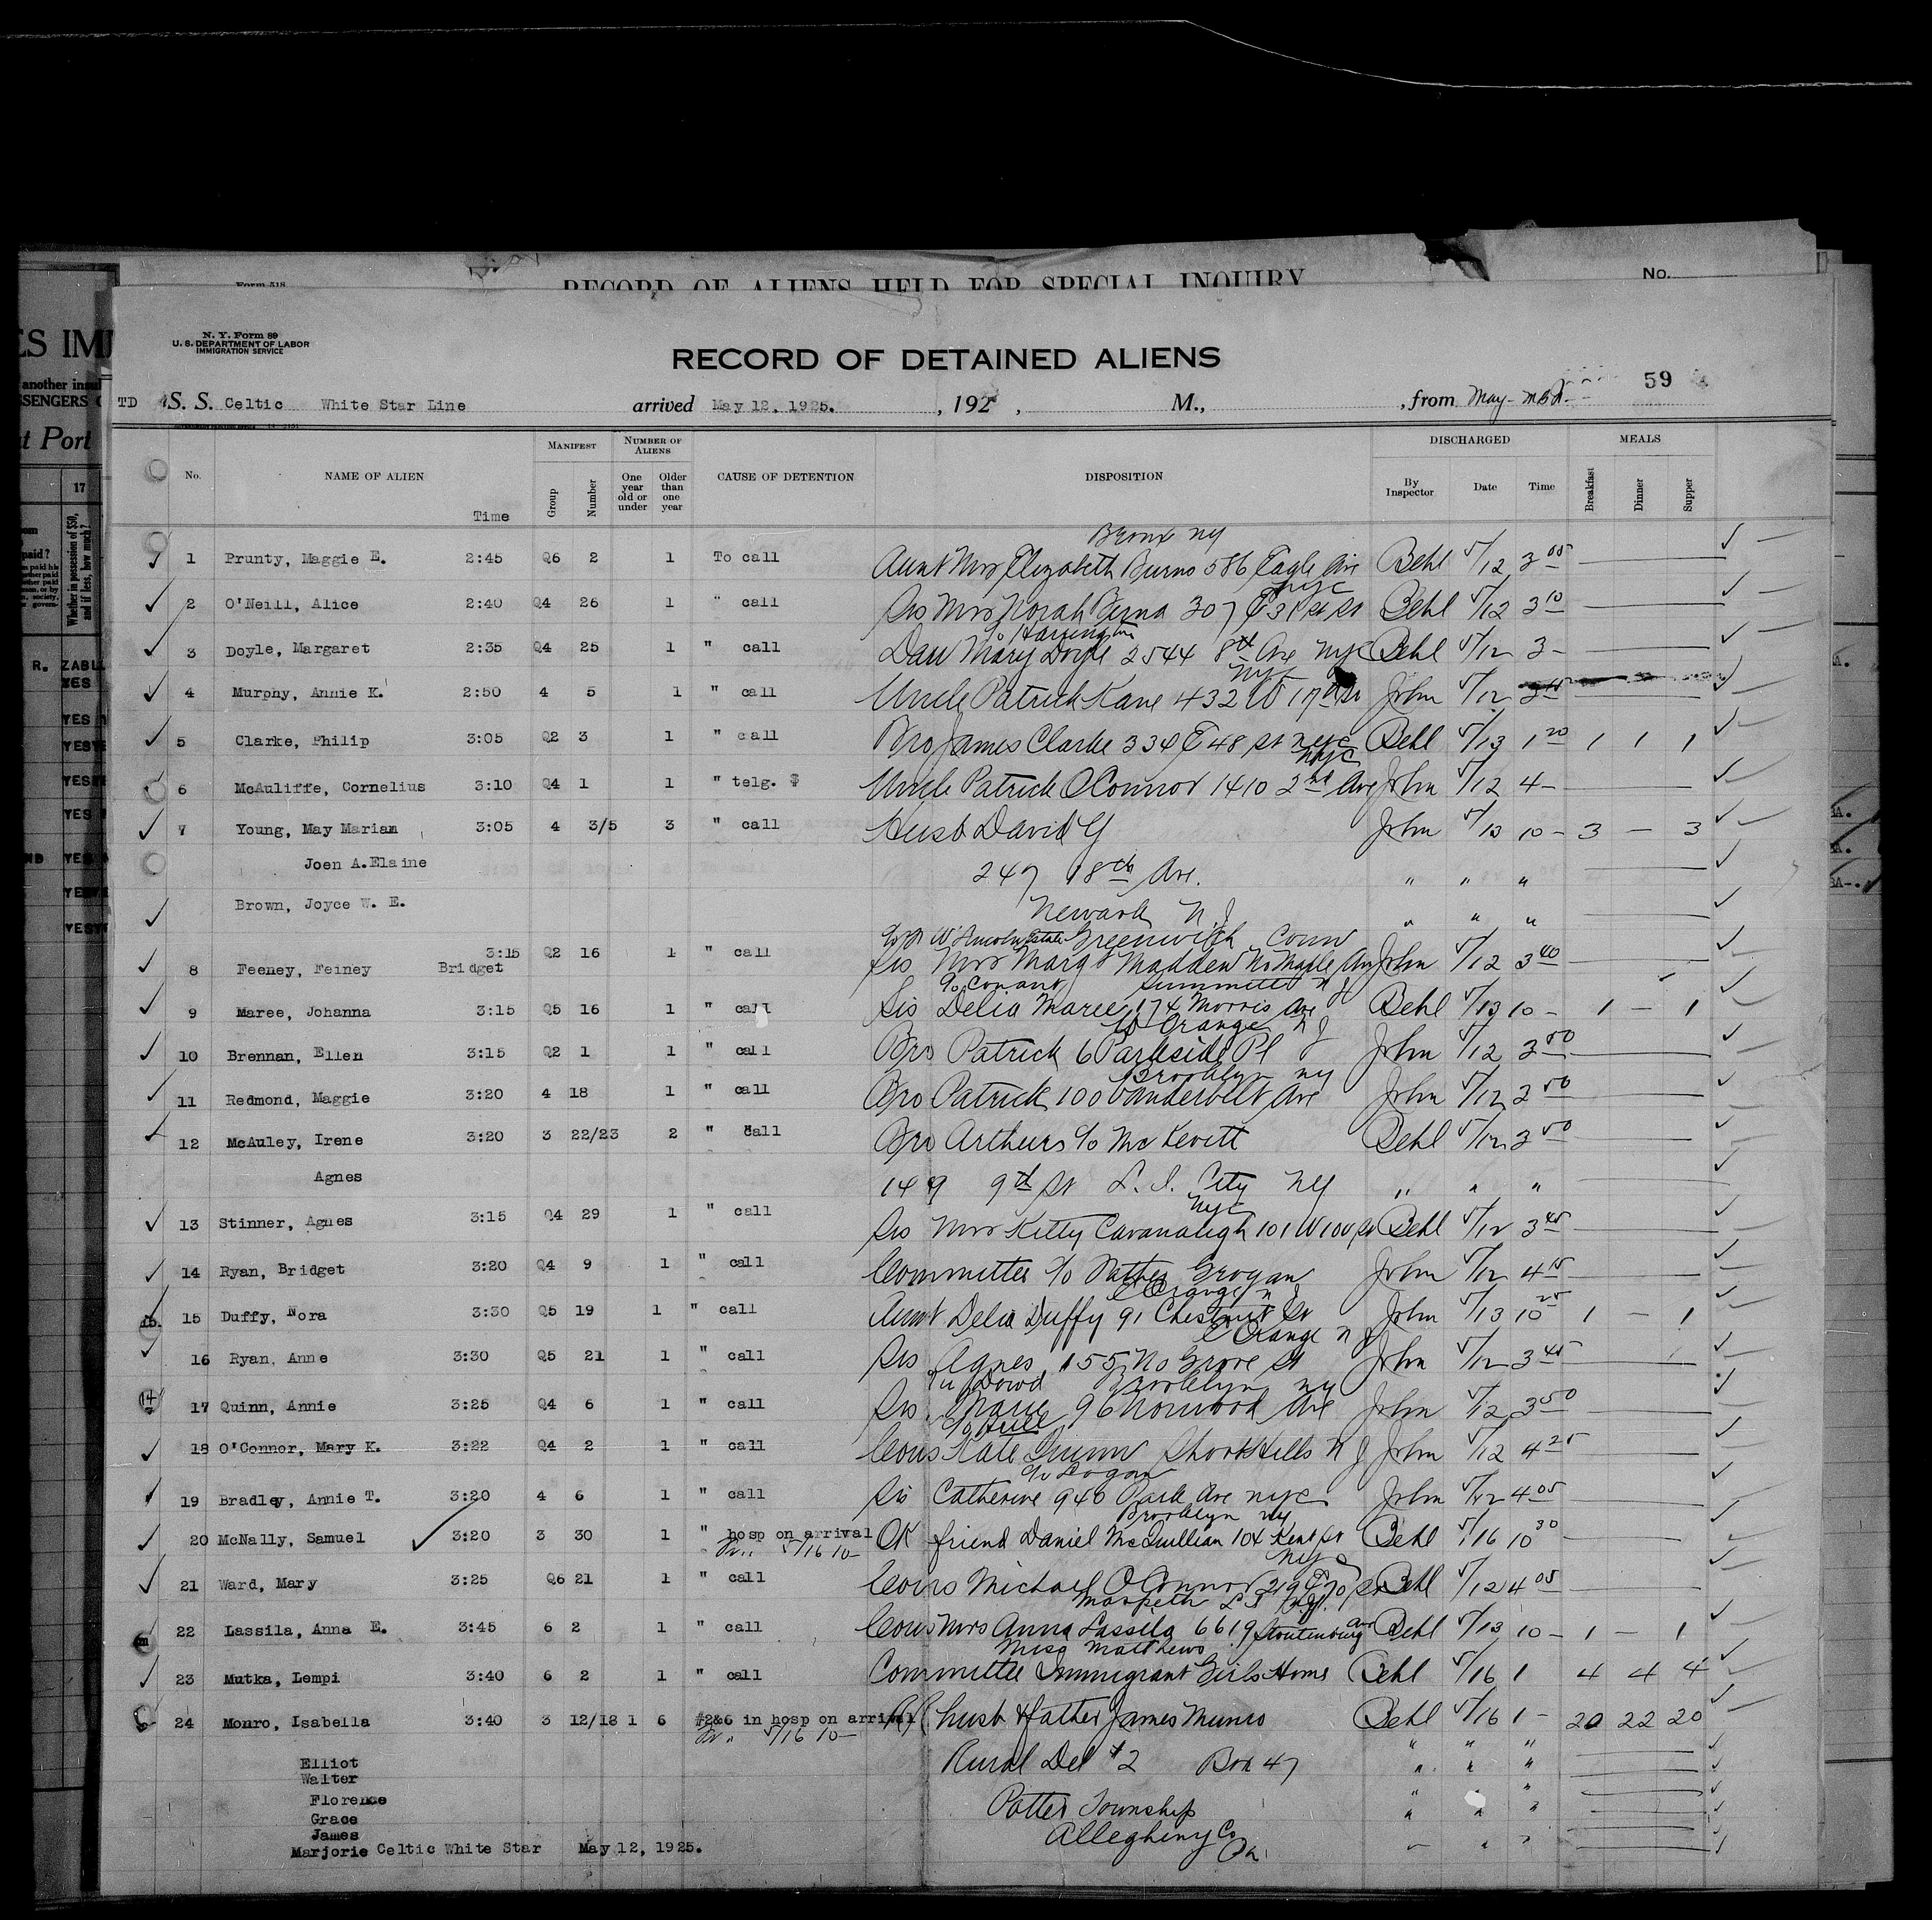 Form 518
RECORD OF ALIENS HELD FOR SPECIAL INQUIRY
No.
N. Y. Form 89
U. S. DEPARTMENT OF LABOR
IMMIGRATION SERVICE
RECORD OF DETAINED ALIENS
59
TD S. S. Celtic White Star Line arrived May 12, 1925. , 192 , M., , from
No. NAME OF ALIEN Time MANIFEST Group Number NUMBER OF ALIENS One year old or under Older than one year CAUSE OF DETENTION DISPOSITION DISCHARGED By Inspector Date Time MEALS Breakfast Dinner Supper
Bronx NY
1 Prunty, Maggie E. 2:45 Q6 2 1 To call Aunt Mrs Elizabeth Burns 586 Eagle Ave Behl 5/12 3 05
NYC
2 O'Neill, Alice 2:40 Q4 26 1 " call Sis Mrs Norah 307 E 31 st St Behl 5/12 3 10
c/o Harrington
3 Doyle, Margaret 2:35 Q4 25 1 " call Dau Mary Doyle 2544 8th Ave NYC Behl 5/12 3 -
NYC
4 Murphy, Annie K. 2:50 4 5 1 " call Uncle Patrick Kane 432 W 17th St John 5/12
5 Clarke, Philip 3:05 Q2 3 1 " call Bro James Clarke 334 E 48 St NYC Behl 5/13 1 20 1 1 1
NYC
6 McAuliffe, Cornelius 3:10 Q4 1 1 " telg. $ Uncle Patrick O Connor 1410 2nd Ave John 5/12 4 -
7 Young, May Marian 3:05 4 3/5 3 " call Husb David Y John 5/13 10 - 3 - 3
Joen A. Elaine 247 18th Ave. " " "
Brown, Joyce W. E. Newark N J " " "
Greenwich Conn
8 Feeney, Feiney Bridget 3:15 Q2 16 1 " call Sis Mrs Margt Madden No Maple Ave John 5/12 3 40
c/o Conant Summitt N J
9 Maree, Johanna 3:15 Q5 16 1 " call Sis Delia Maree 174 Morris Ave Behl 5/13 10 - 1 - 1
Orange N J
10 Brennan, Ellen 3:15 Q2 1 1 " call Bro Patrick 6 Parkside Pl John 5/12 3 50
Brooklyn NY
11 Redmond, Maggie 3:20 4 18 1 " call Bro Patrick 100 Vanderbilt Ave John 5/12 2 50
12 McAuley, Irene 3:20 3 22/23 2 " call Bro Arthurs c/o McKevitt Behl 5/12 3 50
Agnes 149 9th St L. I. City NY " " "
NYC
13 Stinner, Agnes 3:15 Q4 29 1 " call Sis Mrs Kitty Cavanaugh 101 W 100 St Behl 5/12 3 45
14 Ryan, Bridget 3:20 Q4 9 1 " call Committee c/o Father Grogan John 5/12 4 15
E Orange N J
15 Duffy, Nora 3:30 Q5 19 1 " call Aunt Delia Duffy 91 Chestnut St John 5/13 10 25 1 - 1
E Orange N J
16 Ryan, Anne 3:30 Q5 21 1 " call Sis Agnes 155 No Grove St John 5/12 3 45
Dowd Brooklyn NY
17 Quinn, Annie 3:25 Q4 6 1 " call Sis Marie 96 Norwood Ave John 5/12 3 50
18 O'Connor, Mary K. 3:22 Q4 2 1 " call Cous Kate Quinn Short Hills N J John 5/12 4 25
c/o Logan
19 Bradley, Annie T. 3:20 4 6 1 " call Sis Catherine 940 Park Ave NYC John 5/12 4 05
Brooklyn NY
20 McNally, Samuel 3:20 3 30 1 " hosp on arrival OK friend Daniel McQuillian 104 Kent St Behl 5/16 10 30
5/16 10 -
NYC
21 Ward, Mary 3:25 Q6 21 1 " call Cous Michael O Connor 219 E 70 St Behl 5/12 4 05
Maspeth L I NY
22 Lassila, Anna E. 3:45 6 2 1 " call Cous Mrs Anna Lassila 6619 Stoutenburg Ave Behl 5/13 10 - 1 - 1
Miss Matthews
23 Mutka, Lempi 3:40 6 2 1 " call Committee Immigrant Girls Home Behl 5/16 1 4 4 4
24 Monro, Isabella 3:40 3 12/18 1 6 #2&6 in hosp on arrival husb & father James Munro Behl 5/16 1 - 20 22 20
5/16 10 -
Elliot Rural Del #2 Box 47
Walter
Florence Potter Township
Grace
James Allegheny Co
Marjorie Celtic White Star May 12, 1925. Pa.